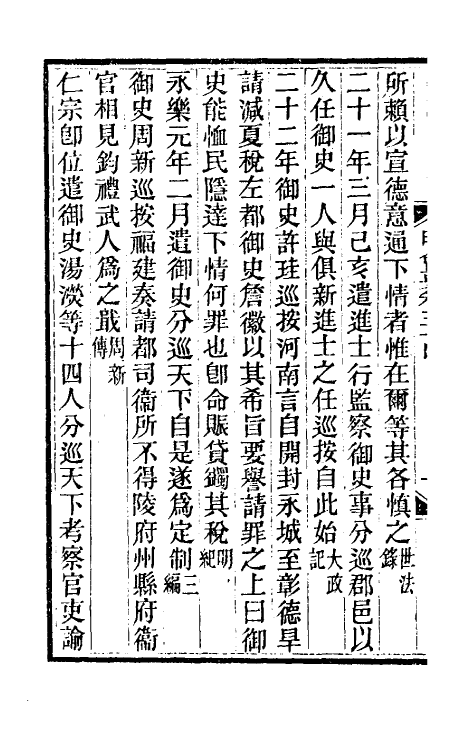 所賴以宣德意通下情者惟在爾等其各慎之世法錄
二十一年三月己亥遣進士行監察御史事分巡郡邑以
久任御史一人與俱新進士之任巡按自此始大政記
二十二年御史許珪巡按河南言自開封永城至彰德旱
請減夏稅左都御史詹徽以其希旨要譽請罪之上曰御
史能恤民隱達下情何罪也卽命賑貸蠲其稅明紀
永樂元年二月遣御史分巡天下自是遂爲定制三編
御史周新巡按福建奏請都司衞所不得陵府州縣府衞
官相見鈞禮武人爲之戢周新傳
仁宗卽位遣御史湯濙等十四人分巡天下考察官吏諭